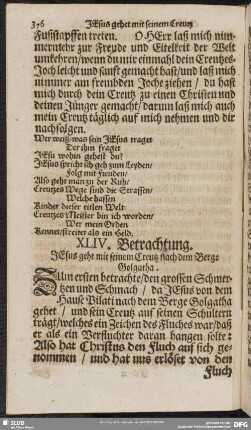 376 JEsus gehet mit seinem Creutz
Fußstapffen treten. O HErr laß mich nim-
mermehr zur Freude und Eitelkeit der Welt
umkehren/wenn du mir einmahl dein Creutzes-
Joch leicht und sanft gemacht hast/und laß mich
nimmer am frembden Joche ziehen/ du hast
mich durch dein Creutz zu einen Christen und
deinen Jünger gemacht/darum laß mich auch
mein Creutz täglich auf mich nehmen und dir
nachfolgen.
Wer weiß/was sein JEsus traget
Der ihm fraget
JEsu wohin gehest du?
JEsus spricht ich geh zum Leyden/
Folg mit Freuden/
Also geht man zu der Ruh/
Creutzes Wege sind die Strassen/
Welche hassen
Kinder dieser eitlen Welt.
Creutzes Meister bin ich worden/
Wer mein Orden
Kennet/streitet als ein Held.
XLIV. Betrachtung.
JEsus geht mit seinem Creutz nach dem Berge
Golgatha.
ZUm ersten betrachte/den grossen Schmer-
tzen und Schmach/ da JEsus von dem
Hause Pilati nach dem Berge Golgatha
gehet/ und sein Creutz auf seinen Schultern
trägt/welches ein Zeichen des Fluches war/daß
er als ein Verfluchter daran hangen solte:
Also hat Christus den Fluch auf sich ge-
nommen/ und hat uns erlöset von den
Fluch
SLUB